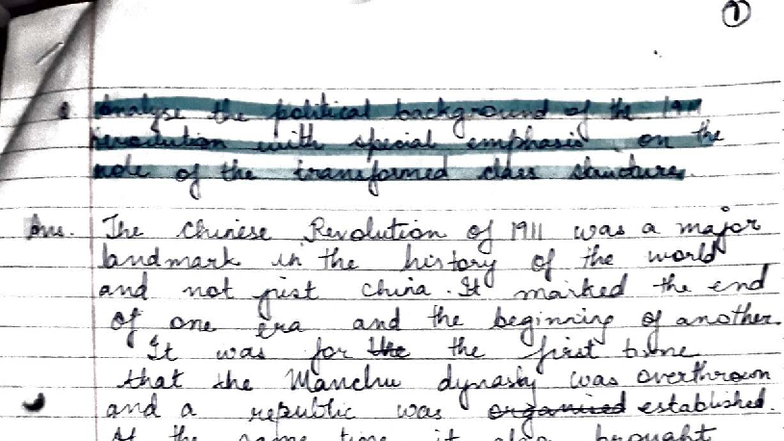 ①
Q. Analyse the political background of the 1911
revolution with special emphasis on the
role of the transformed class structure.
Ans. The Chinese Revolution of 1911 was a major
landmark in the history of the world
and not just China. It marked the end
of one era and the beginning of another.
It was for the the first time
that the Manchu dynasty was overthrown
and a republic was organised established.
At the same time it also brought